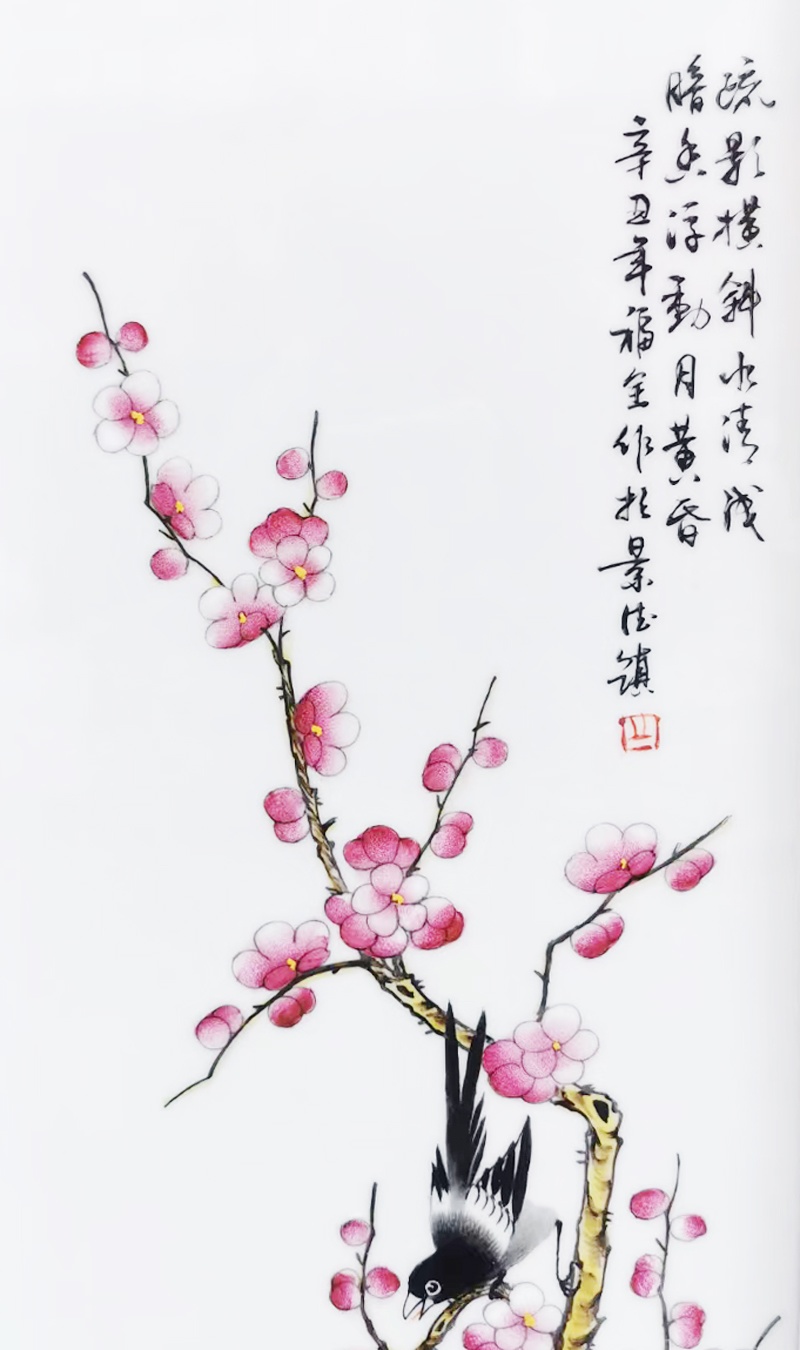 疏影橫斜水清浅
暗香浮動月黄昏
辛丑年福全作於景德鎮